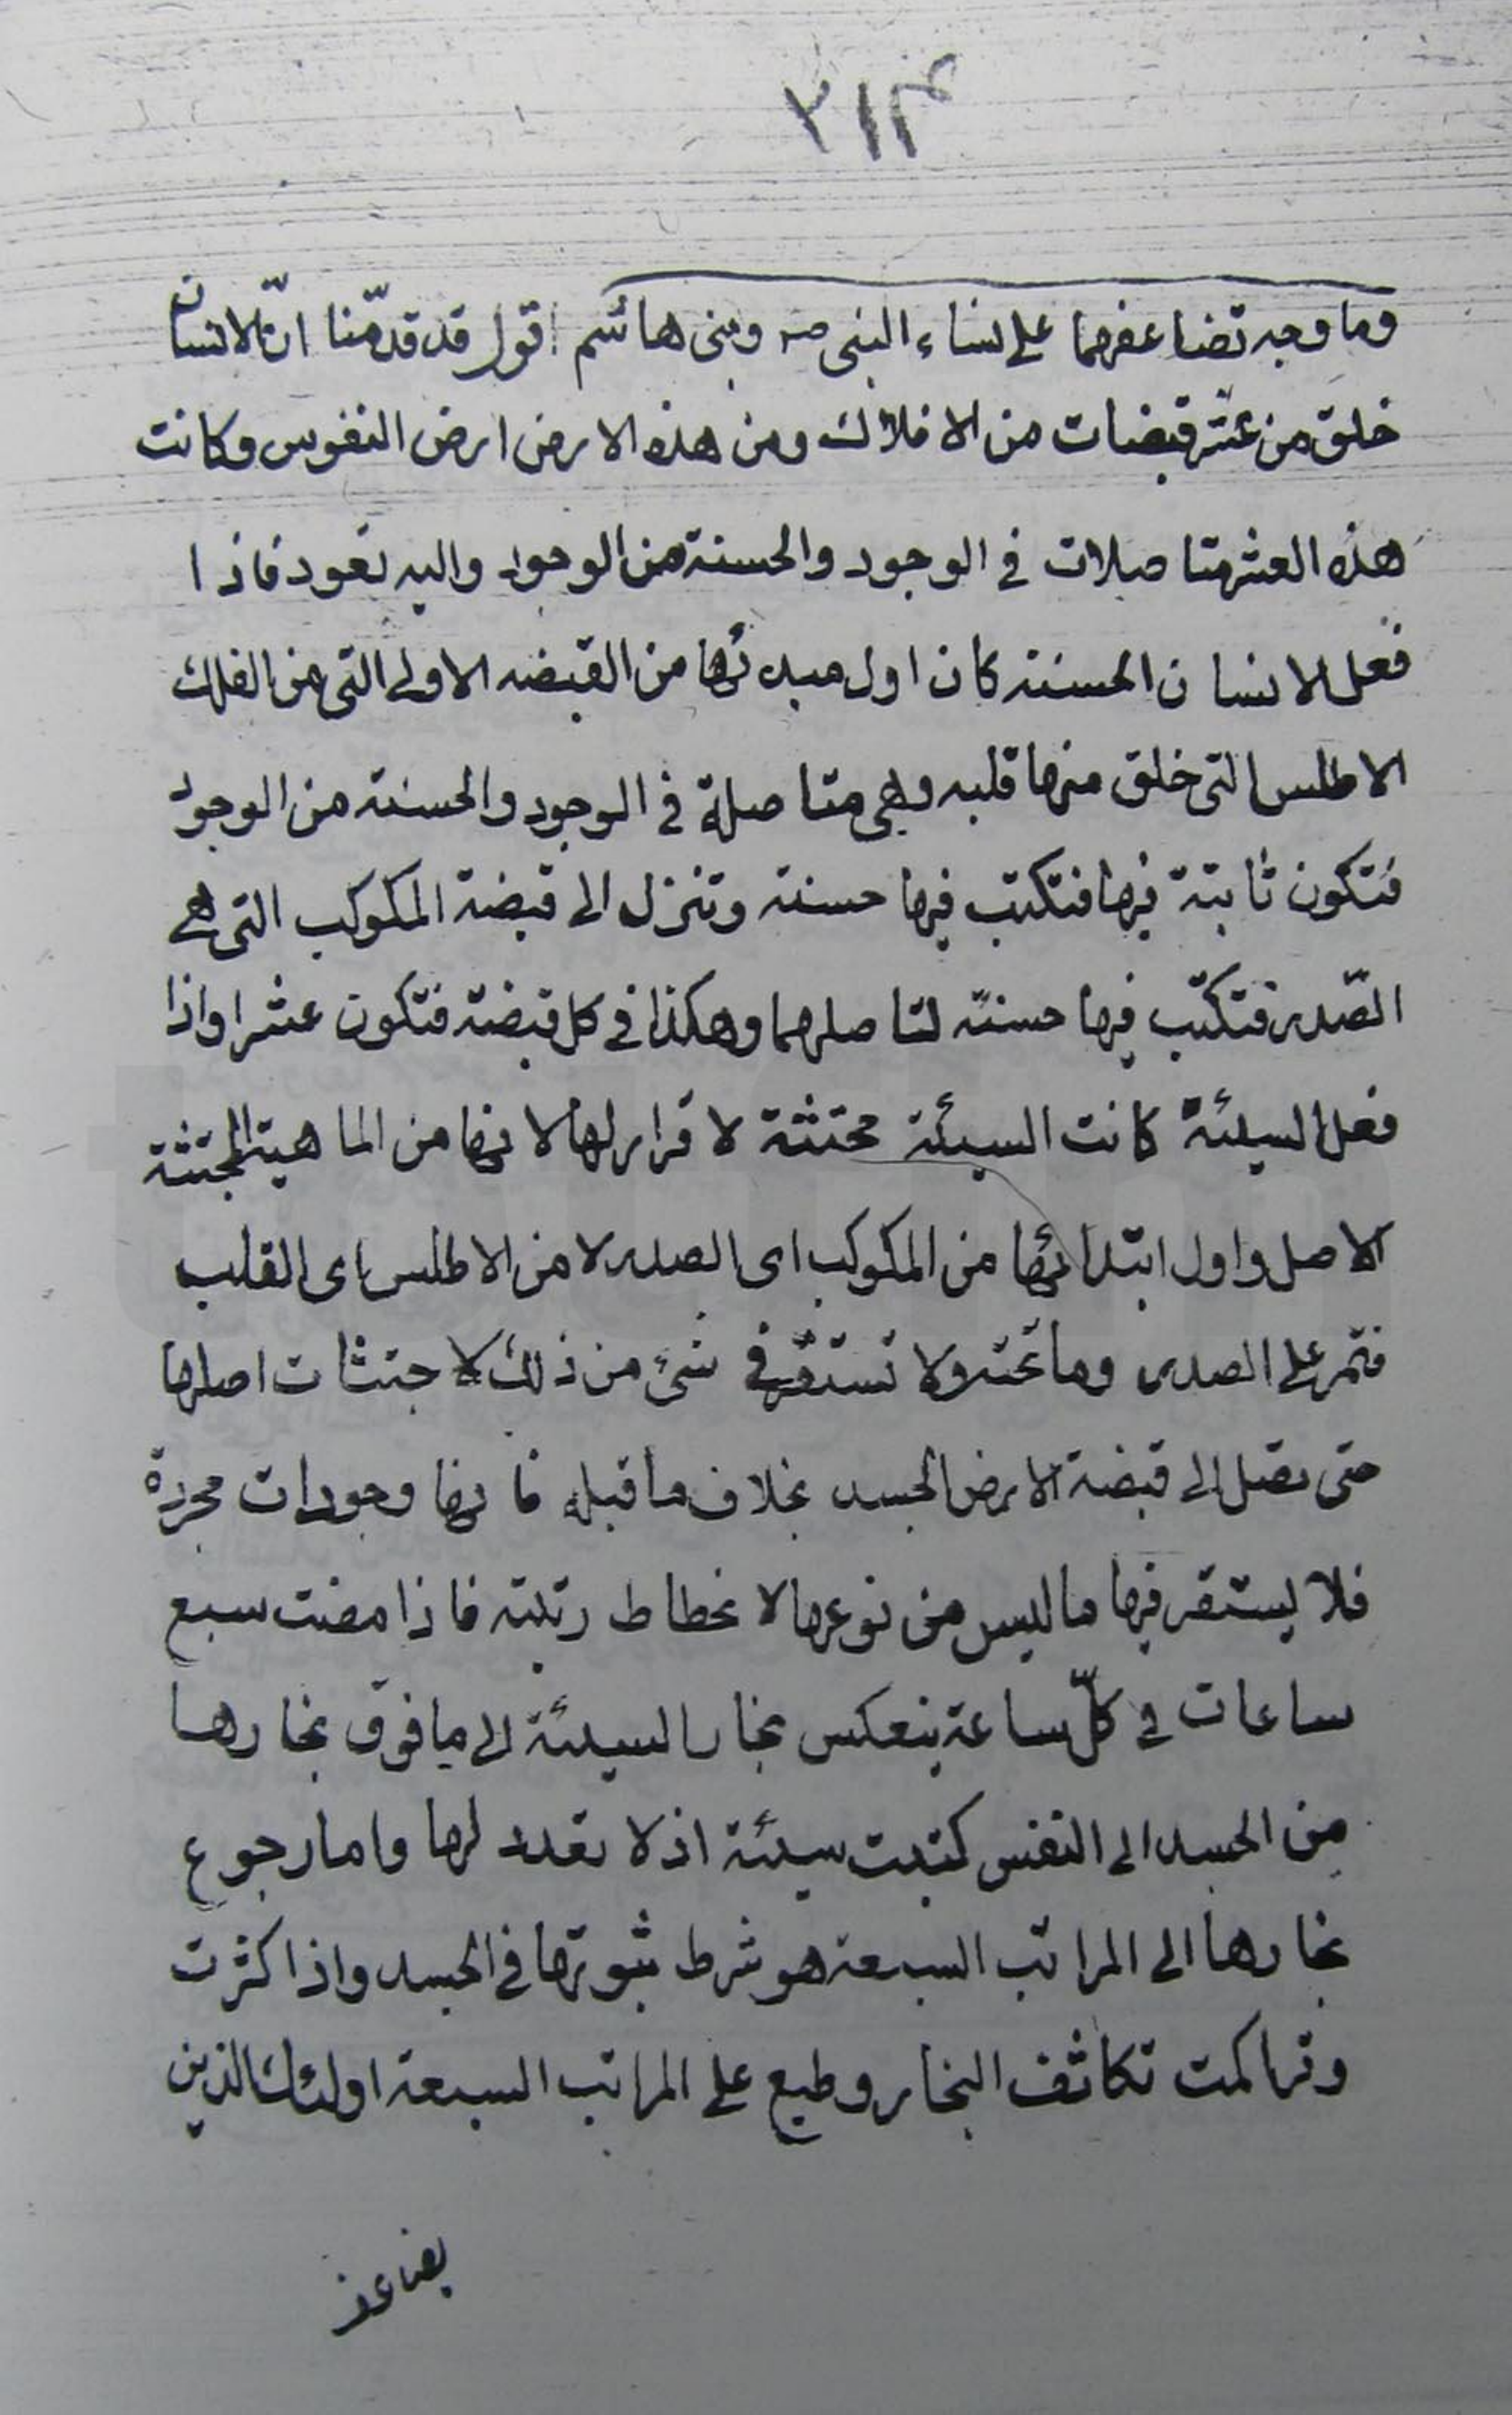 ٣١٣
وما وجه تضاعفهما على نساء النبي صه وبني هاشم اقول قد قدّمنا انّ الانسان
خلق من عشر قبضات من الافلاك ومن هذه الارض ارض النفوس وكانت
هذه العشر متاصلات في الوجود والحسنة من الوجود واليه تعود فاذا
فعل الانسان الحسنة كان اول مبدئها من القبضه الاولى التى من الفلك
الاطلس التى خلق منها قلبه وهي متاصلة في الوجود والحسنة من الوجود
فتكون ثابتة فيها فتكتب فيها حسنة وتنزل الى قبضة المكوكب التى هي
الصّدر فتكتب فيها حسنة لتاصلهما وهكذا في كل قبضة فتكون عشرا واذا
فعل السيئة كانت السيئة مجتثة لا قرار لها لانها من الماهية المجتثة
الاصل واول ابتدائها من المكوكب اى الصدر لا من الاطلس اى القلب
فتمر على الصدر وما تحته ولا تستقر في شئ من ذلك لاجتثاث اصلها
حتى تصل الى قبضة الارض الجسد بخلاف ما قبله فانها وجودات مجردة
فلا يستقر فيها ما ليس من نوعها لانحطاط رتبته فاذا مضت سبع
ساعات في كلّ ساعة ينعكس بخار السيئة الى ما فوق بخارها
من الجسد الى النفس كتبت سيئة اذ لا تعدد لها واما رجوع
بخارها الى المراتب السبعة هو شرط ثبوتها في الجسد واذا كثرت
وتراكمت تكاثف البخار وطبع على المراتب السبعة اولئك الذين